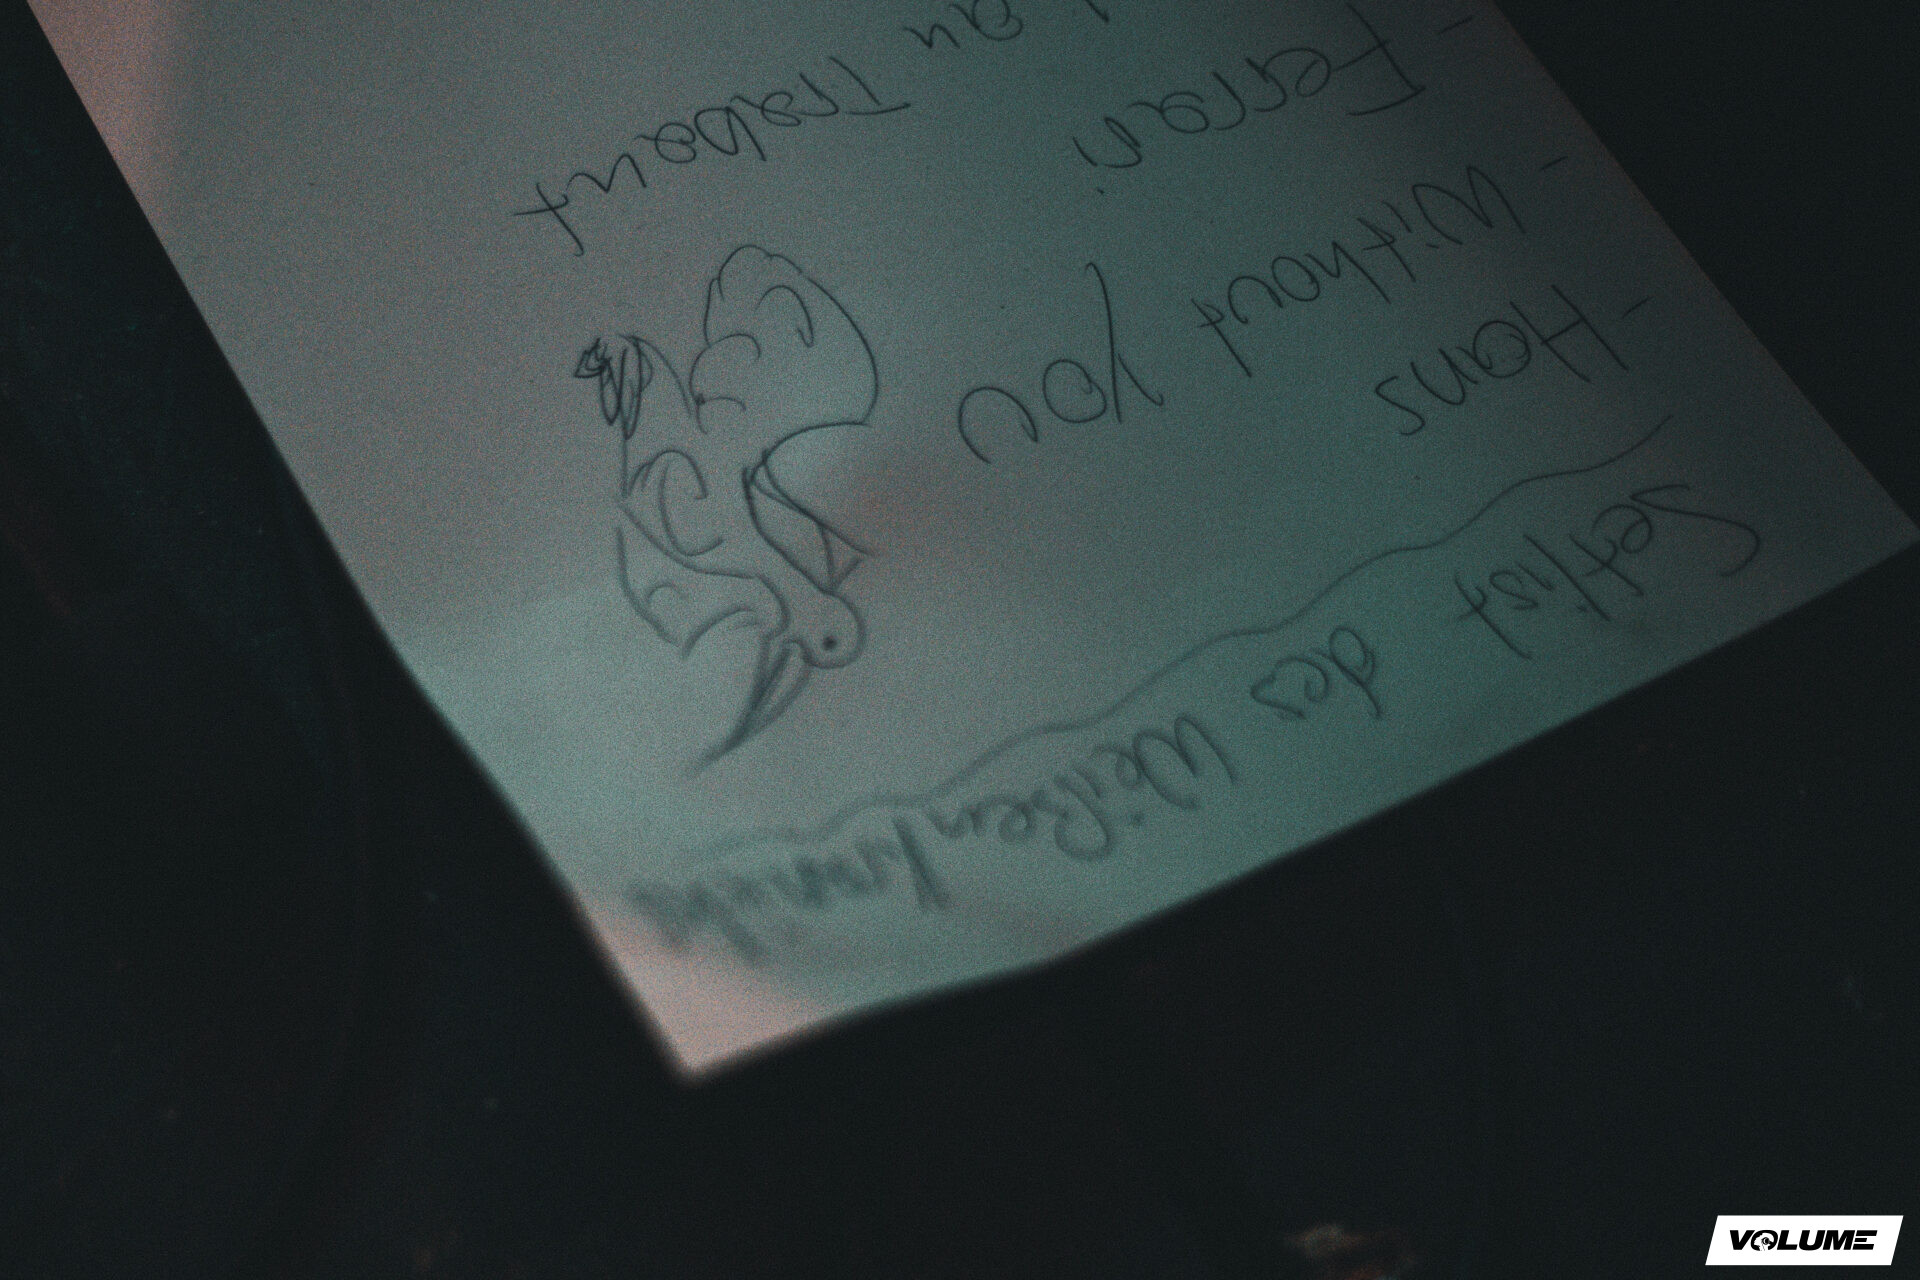 Setlist des Weißen Kranichs
- Hans
- Without you
- Ferrari Trabant
VOLUME